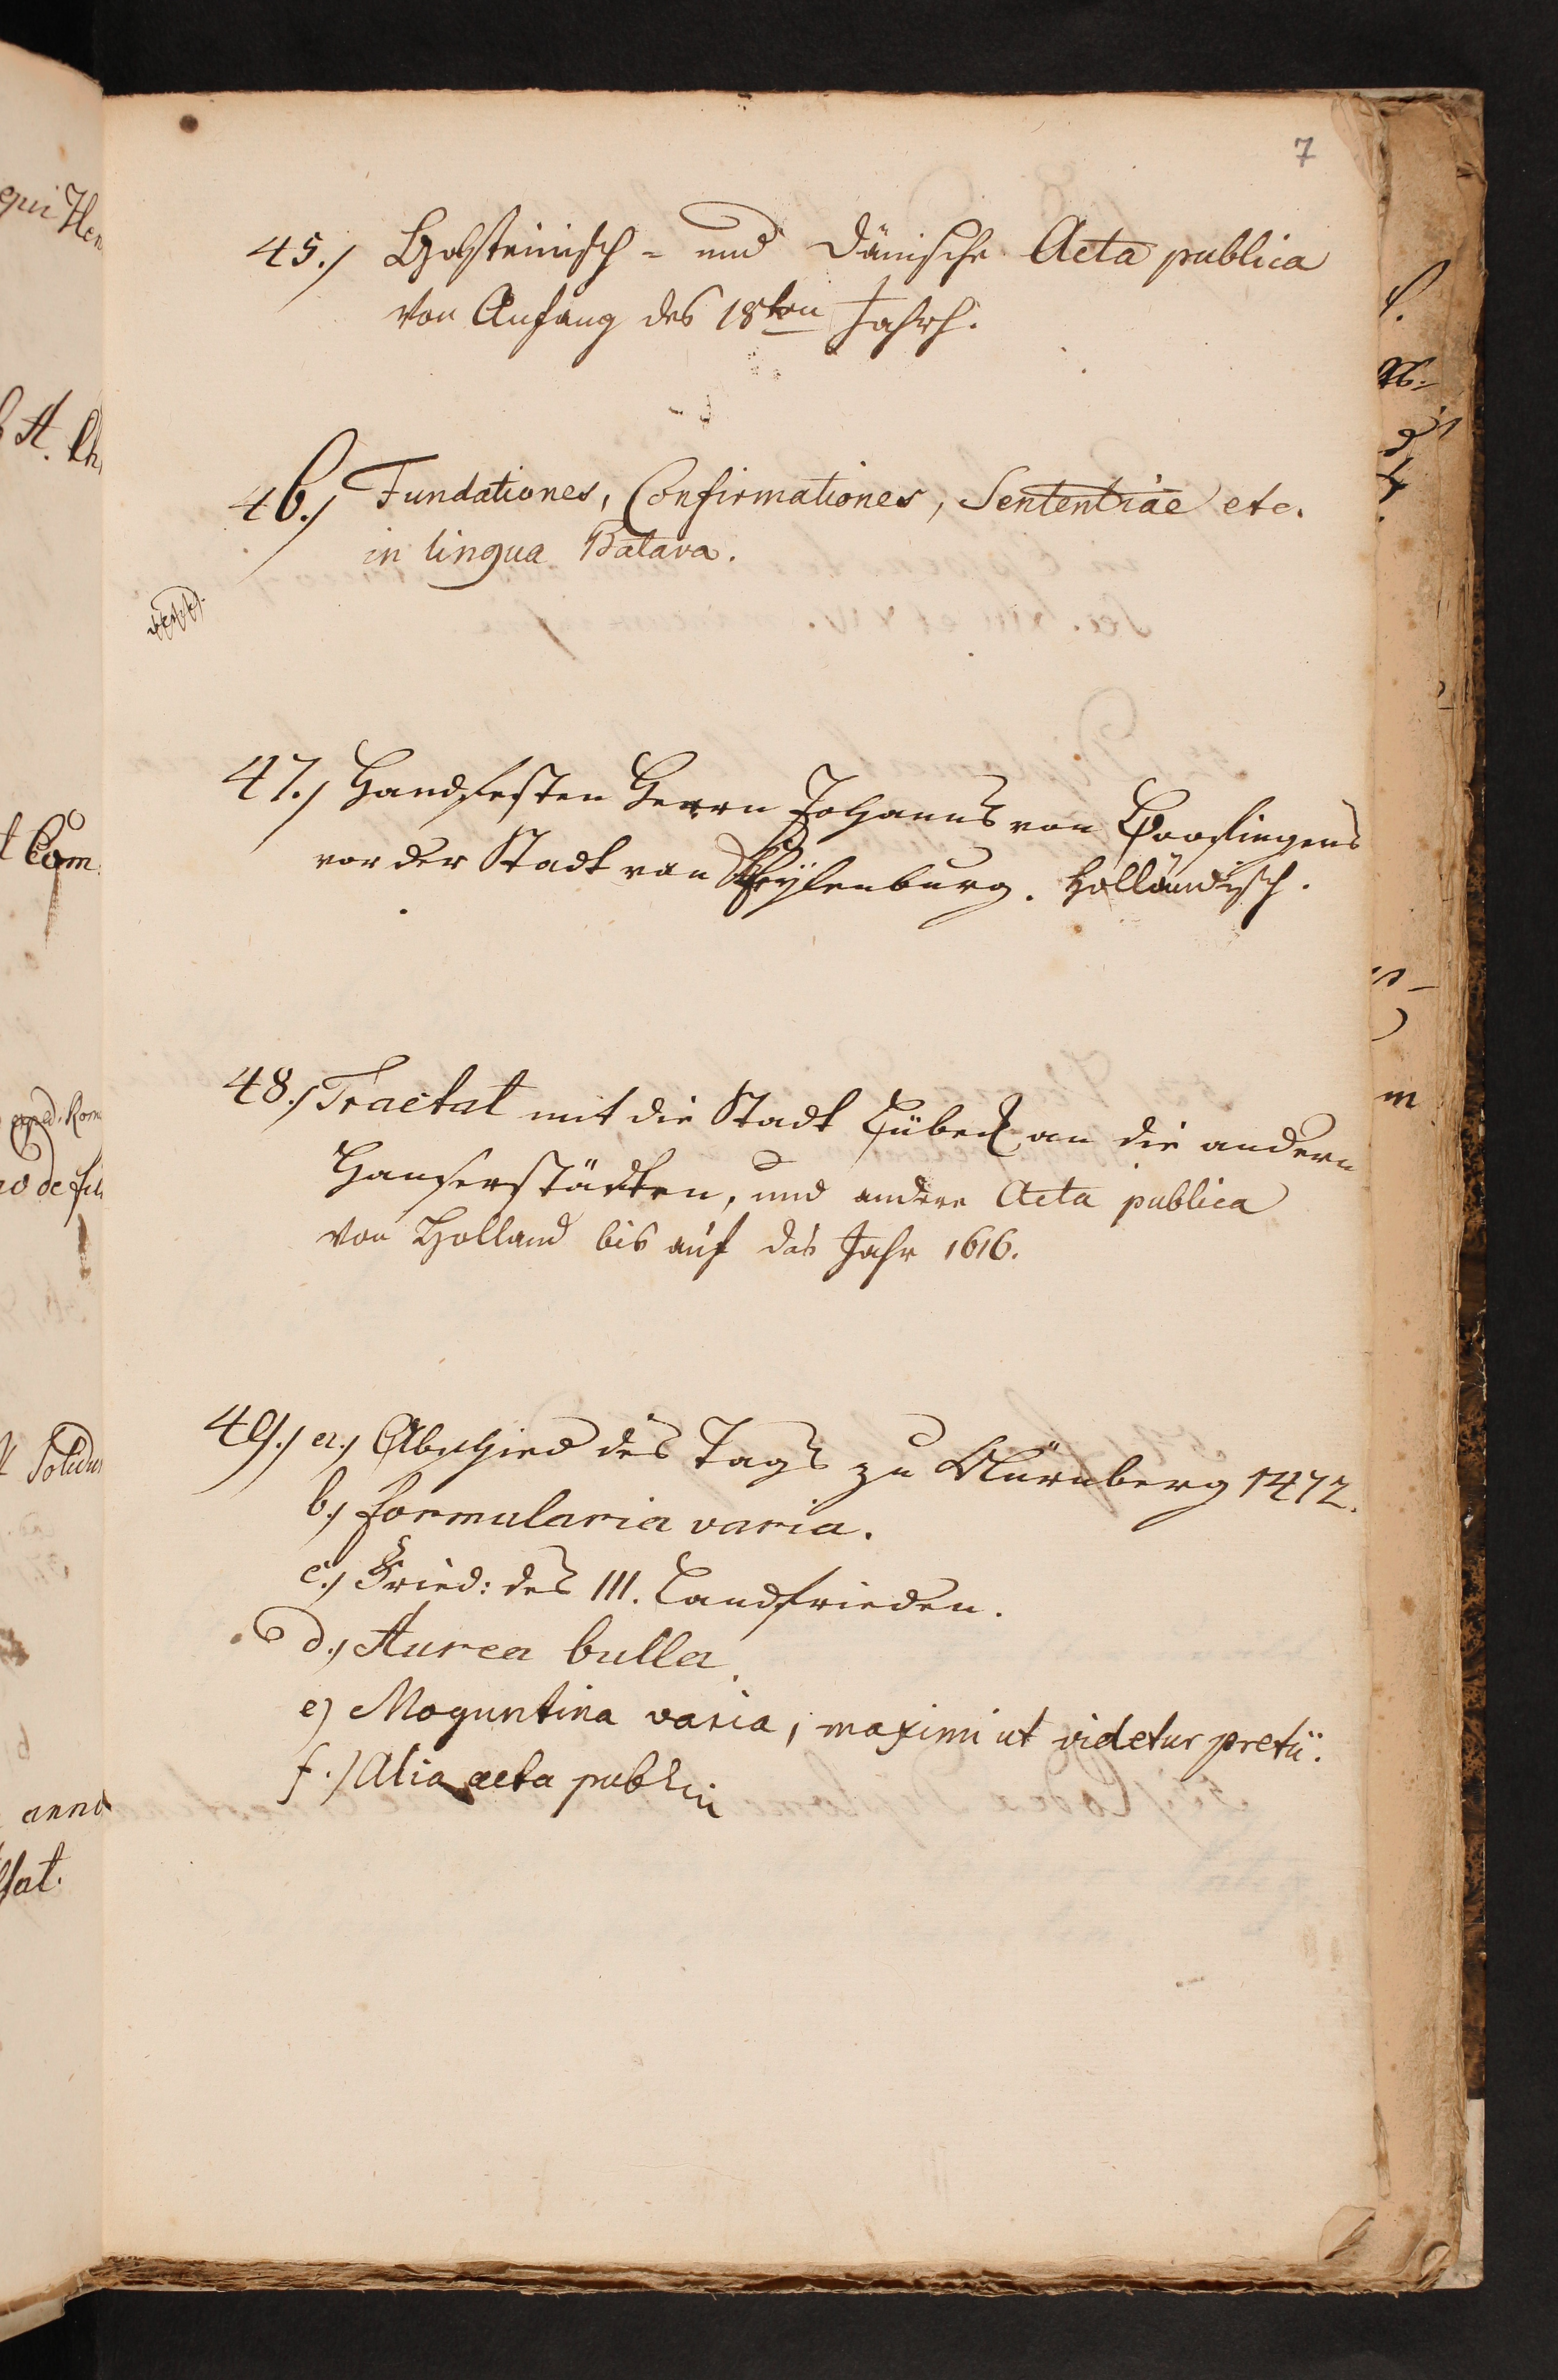 7
45.) Holsteinisch- und Dänische Acta publica
von Anfang des 18ten Jahrh.
46.) Fundationes, Confirmationes, Sententiae etc.
in lingua Batava.
47.) Handfesten Herrn Johanns von
vor der Stadt van . Holländisch.
48.) Tractat mit die Stadt Lübeck an die andern
Hanseestädten, und andere Acta publica
von Holland bis auf das Jahr 1616.
49.) a.) Abschied des Tags zu Nürnberg 1472.
b.) formularia varia.
c.) Fried: des III. Landfrieden.
d.) Aurea bulla.
e) Moguntina varia, maximi ut videtur pretii.
f.) Alia acta public